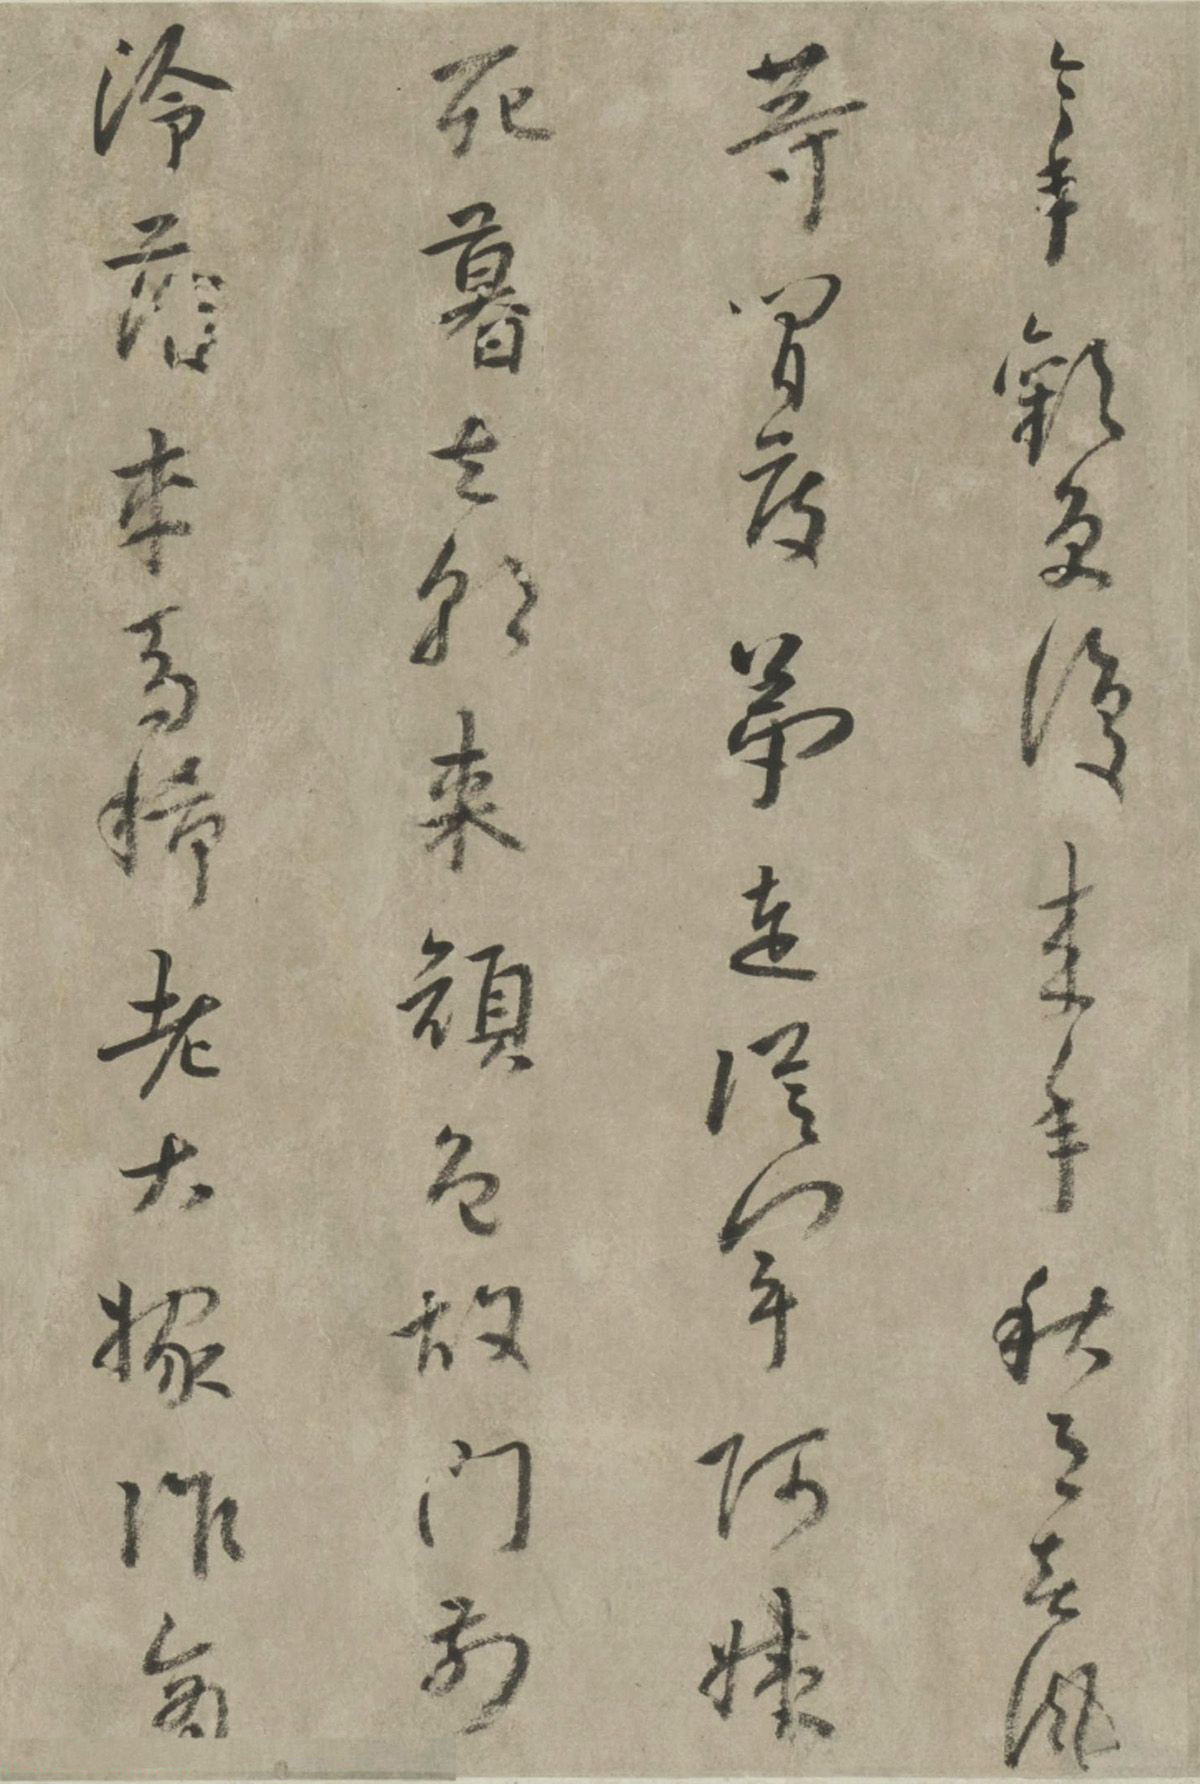 今年歡笑復来年秋月春風
等閒度弟走從軍阿姨
死暮去朝來顏色故門前
泠落車馬稀老大嫁作商